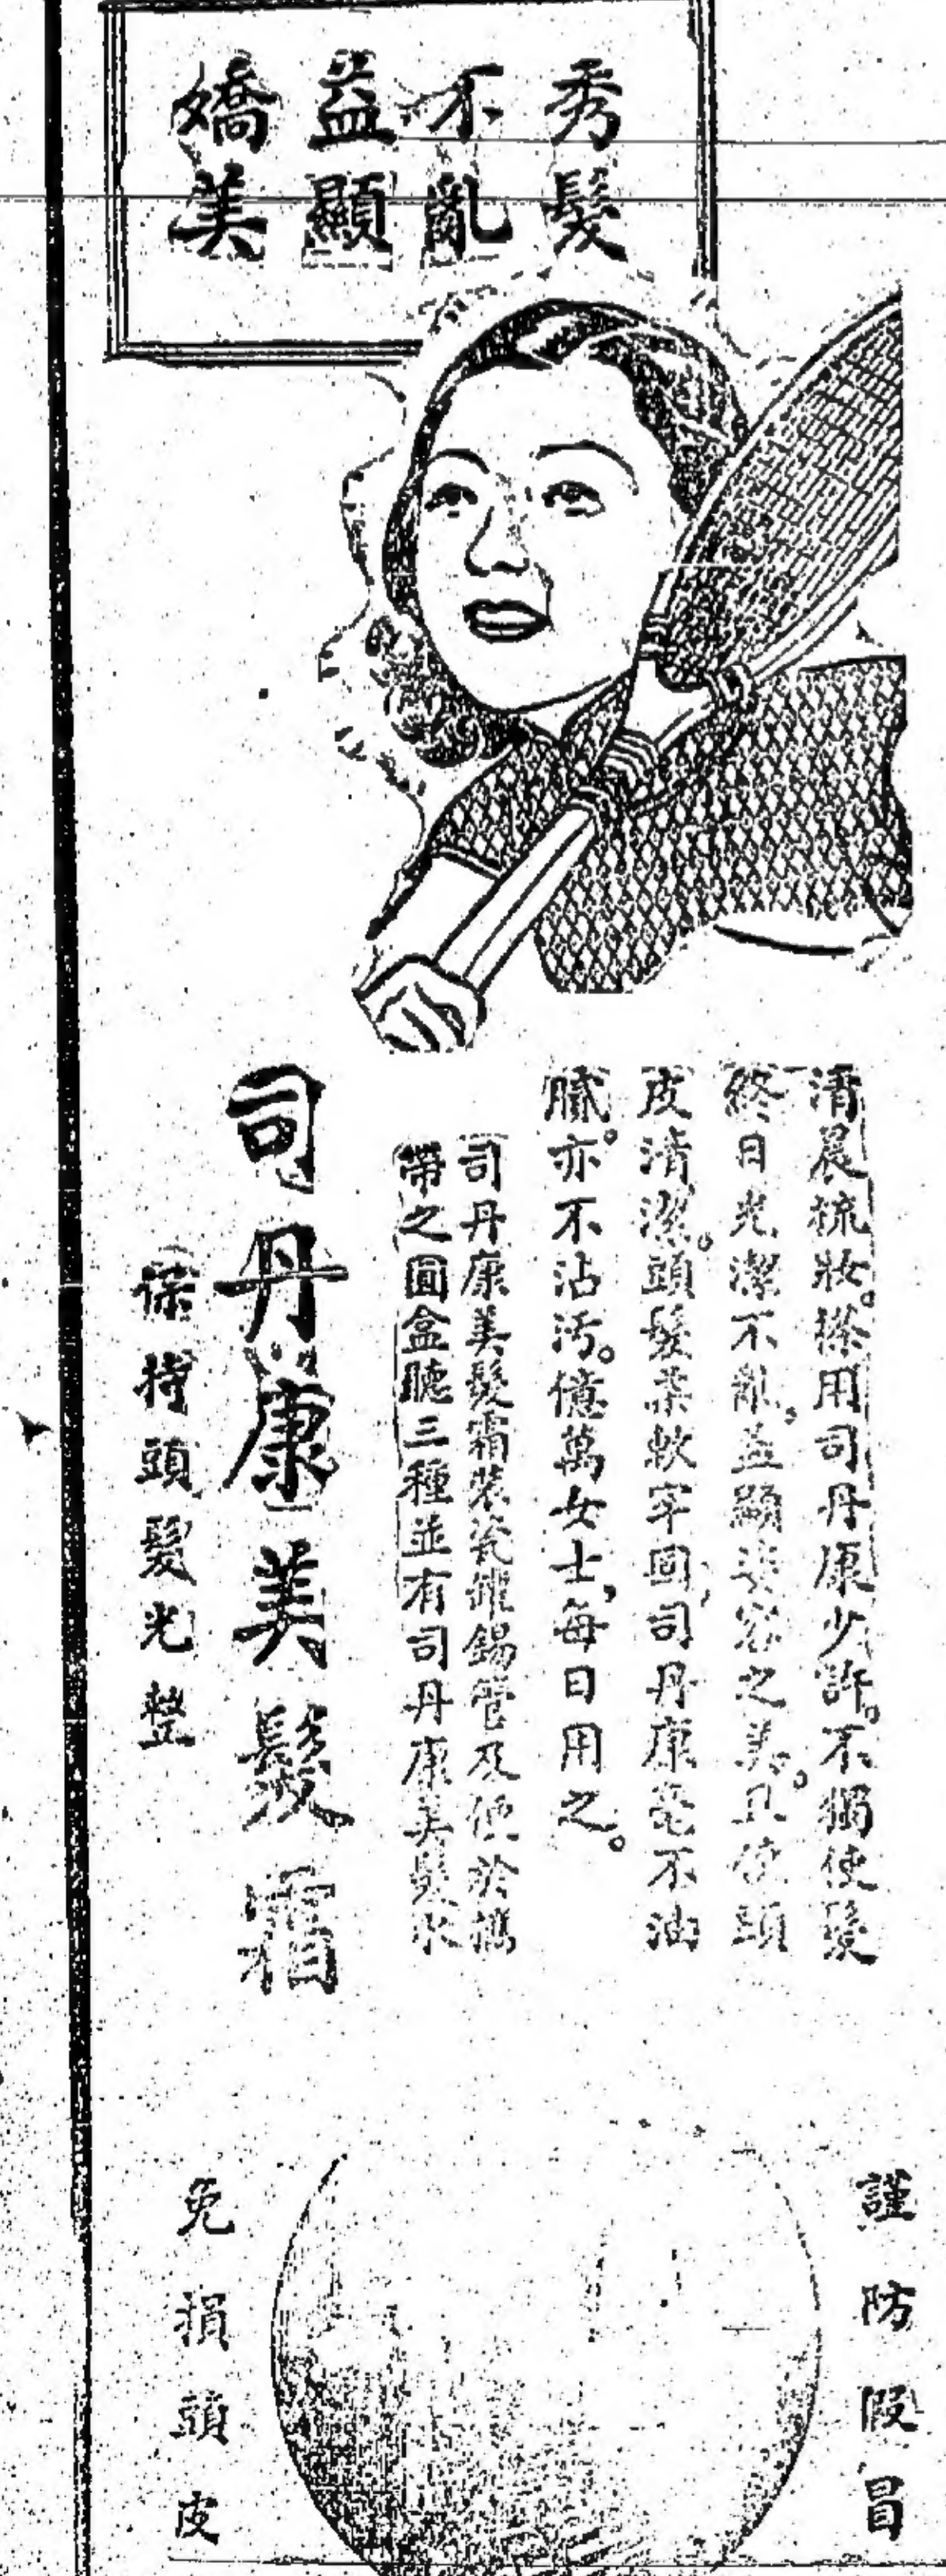 秀髮
不亂
益顯
嬌美
清晨梳妝。搽用司丹康少許。不獨使髮
終日光潔不亂。益顯姿容之美。且使頭
皮清潔。頭髮柔軟牢固，司丹康毫不油
膩。亦不沾汚。億萬女士，每日用之。
司丹康美髮霜裝瓷罐錫管及便於攜
帶之圓盒聽三種並有司丹康美髮水
司丹康美髮霜
保持頭髮光整
謹防假冒
免損頭皮